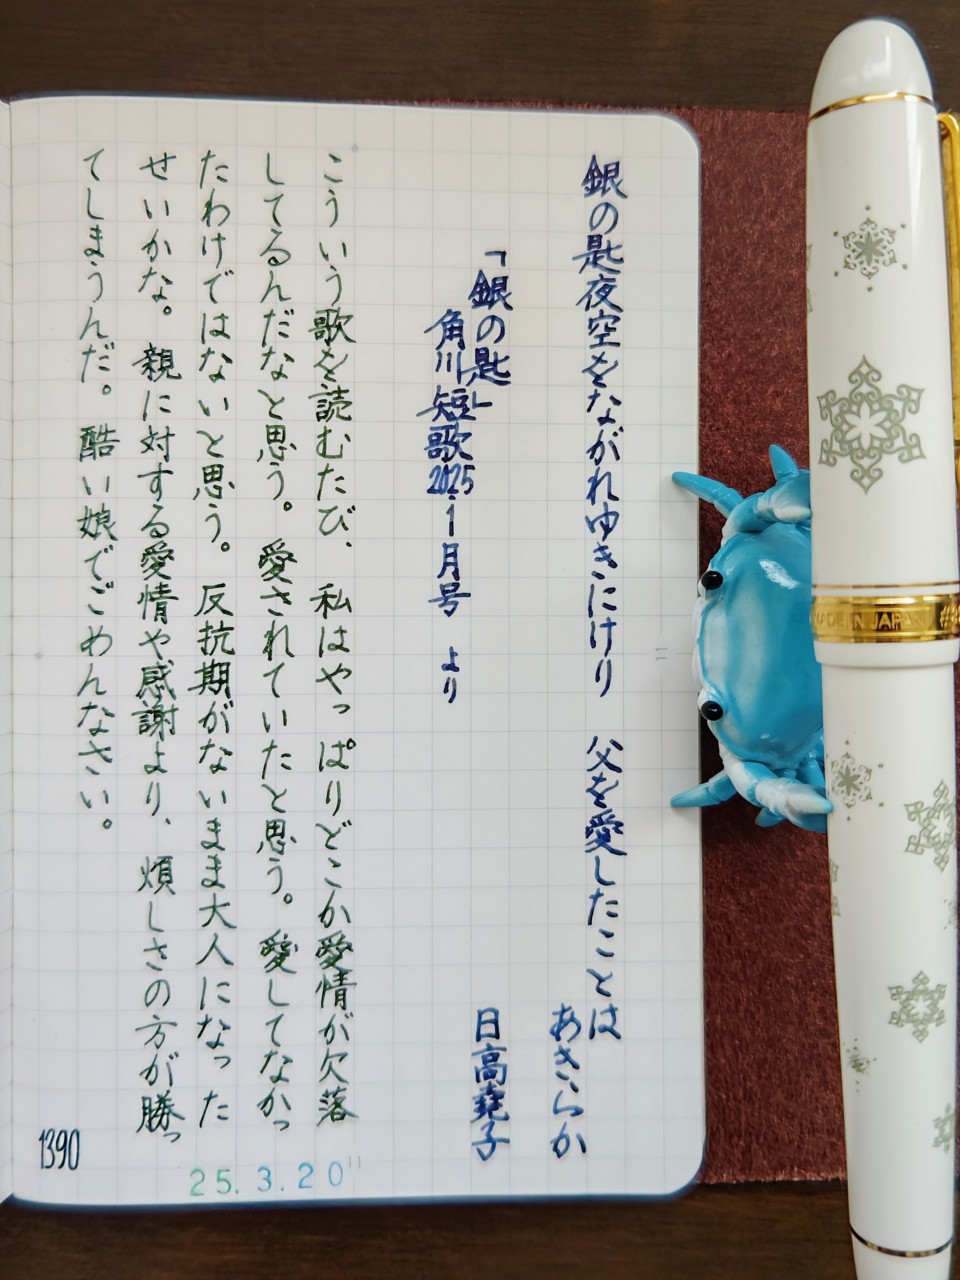 銀の匙夜空をながれゆきにけり　父を愛したことは
あきらか
「銀の匙」　日高堯子
角川短歌2025.1月号　より
こういう歌を読むたび、私はやっぱりどこか愛情が欠落
してるんだなと思う。愛されていたと思う。愛してなかっ
たわけではないと思う。反抗期がないまま大人になった
せいかな。親に対する愛情や感謝より、煩しさの方が勝っ
てしまうんだ。酷い娘でごめんなさい。
1390
25.3.20
11
11
MADE IN JAPAN